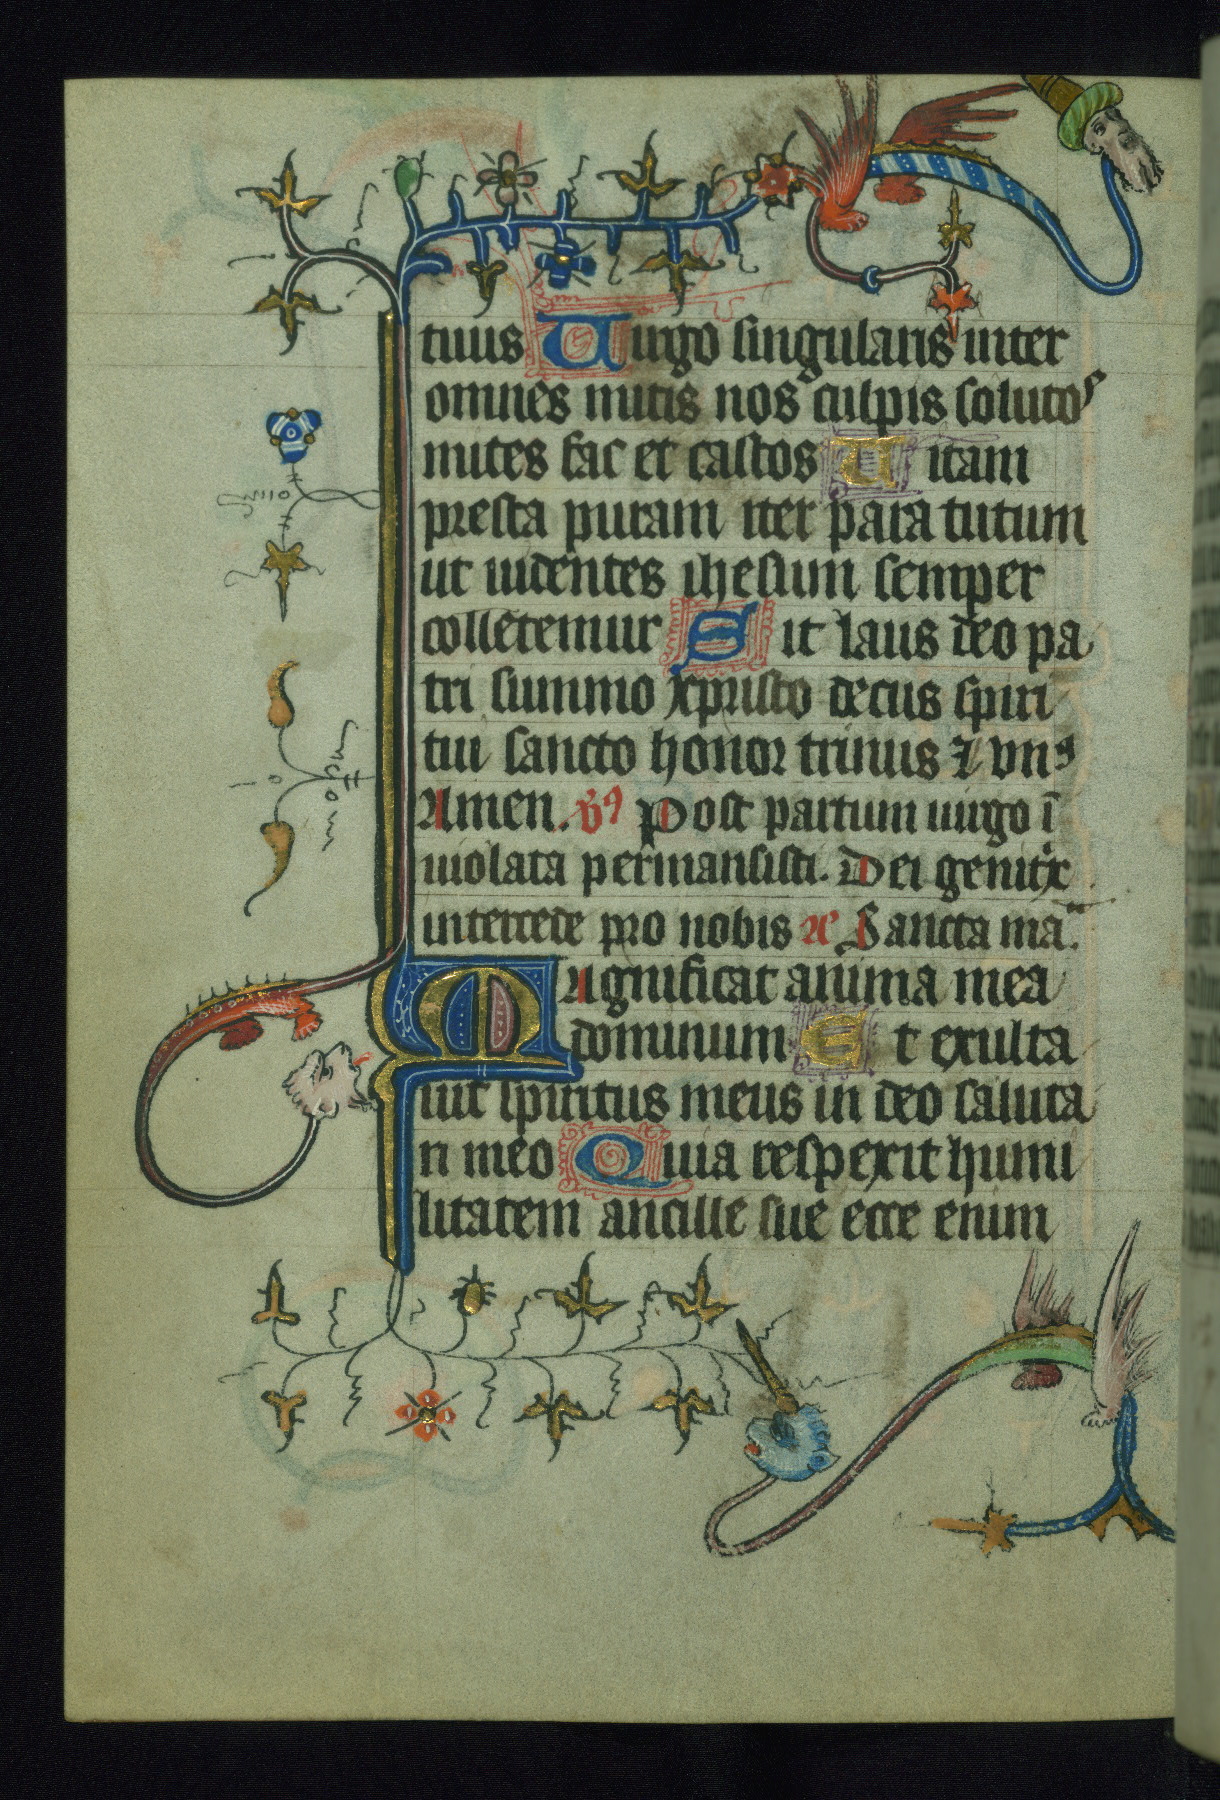 tuus Uirgo singularis inter
omnes mitis nos culpis soluto⁹
mites fac et castos Uitam
presta puram iter para tutum
ut uidentes ihesum semper
collētemur Sit laus deo pa
tri summo xpristo decus spiri
tui sancto honor trinus ⁊ vn⁹
Amen. Post partum uirgo ī
uiolata permansisti. Dei genitͥx
intercede pro nobis Sancta ma.
Magnificat anima mea
dominum Et exulta
uit spiritus meus in deo saluta
ri meo Quia respexit humi
litatem ancille sue ecce enim